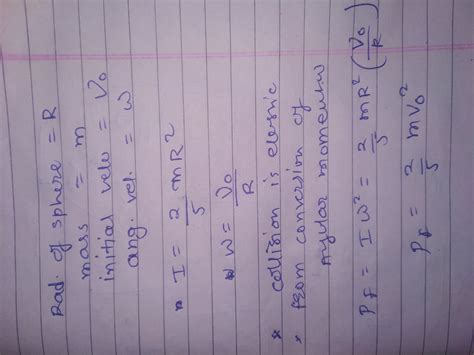 Rad. of sphere = R
mass = m
initial velo = V₀
ang. vel. = w
" I = 2/5 mR²
" w = V₀/R
* collision is elasnic
* from conversion of
angular momentum
P_f = I w² = 2/5 mR² (V₀/R)
P_f = 2/5 mV₀²